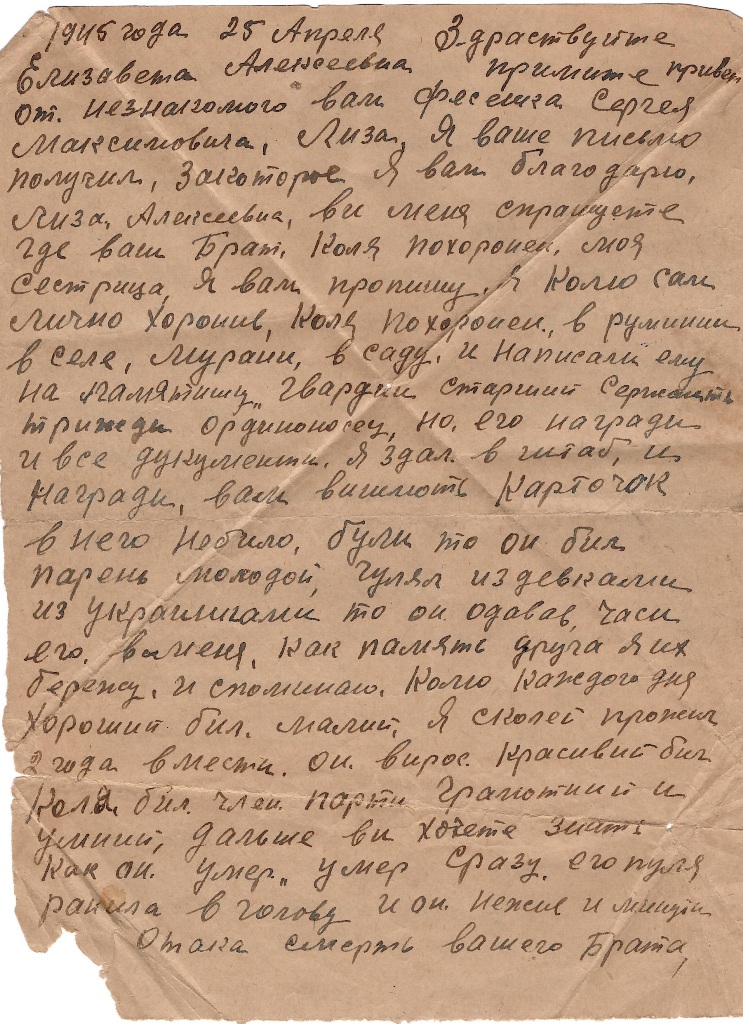 1945 года 25 Апреля Здраствуйте
Елизавета Алексеевна примите привет
от. незнакомого вам Фесенка Сергея
Максимовича, Лиза, Я ваше письмо
получил, Закоторое Я вам благодарю,
Лиза, Алексеевна, ви меня спрашуете
где ваш Брат. Коля похоронен, моя
Сестрица, Я вам пропишу. Я Колю сам
лично хоронив, Коля похоронен, в румынии
в селе, Мурани, в саду. и написали ему
на памятнику, Гвардии старший Сержантъ
трижди ординоносец, но. его награди
и все дукументи. Я здал. в штаб, и
награди, вам вишлють Карточок
в него небило, були то он бил
парень молодой, гулял издевками
из украинками то он одавав, часи
его. вмене, Как память друга Я их
бережу. и споминаю. Колю Каждого дня
хороший бил. малий, Я сколей прожил
2 года вмести. он. вирос. Красивий бил
Коля. бил. член. парти Грамотний и
умний, дальше ви хочете знать
Как он. умер,, умер Сразу. его пуля
ранила в голову и он. нежив и минути
Отака смерть вашего Брата,